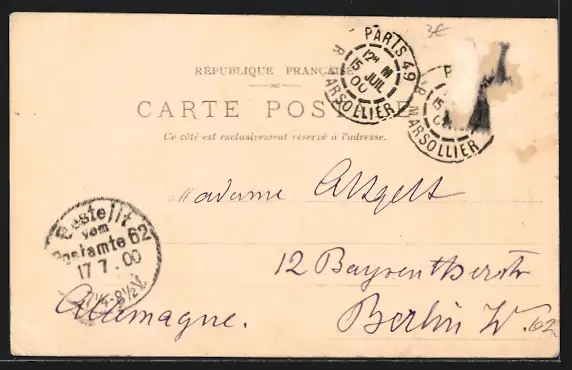 3€
PARIS 49
R. MARSOLLIER
12H M
15
JUIL
00
P
R. MARSOLLIER
15
RÉPUBLIQUE FRANÇAISE
CARTE POSTALE
Ce côté est exclusivement réservé à l'adresse.
Madame
Bestellt
vom
Postamte 62
17 7. 00
7½-8½V.
12 Bayreutherstr
Allemagne.
Berlin W. 62